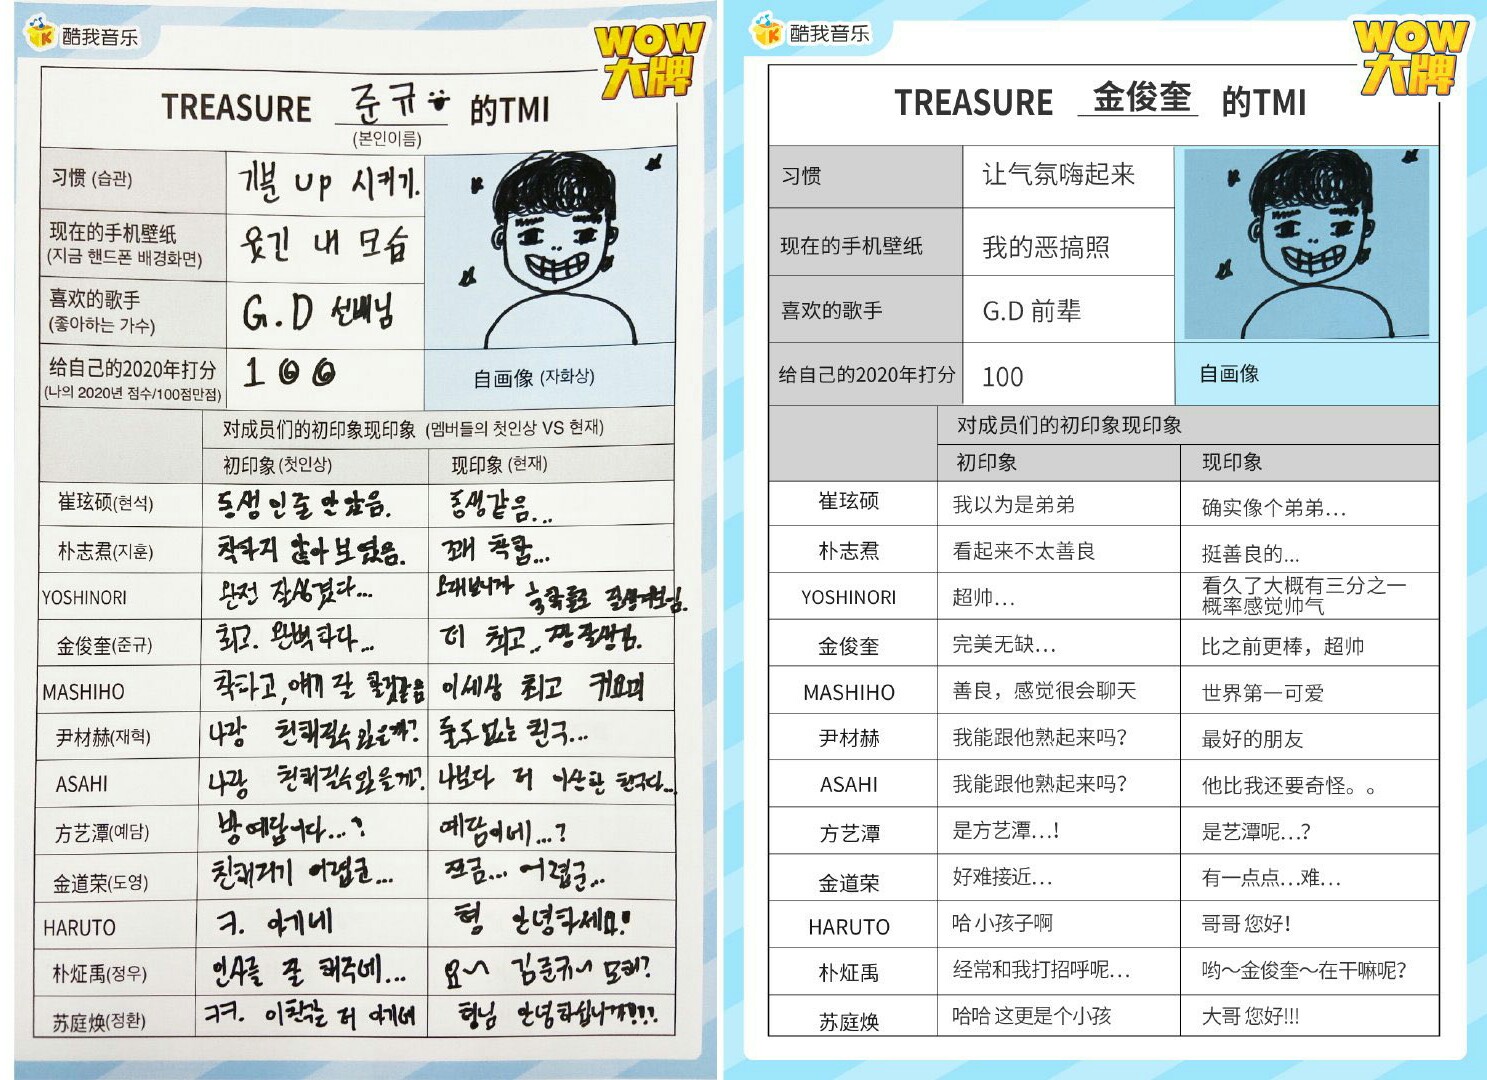 酷我音乐
WOW
大牌
TREASURE 준규 的TMI
(본인이름)
习惯 (습관)
기분 up 시키기.
现在的手机壁纸
(지금 핸드폰 배경화면)
웃긴 내 모습
喜欢的歌手
(좋아하는 가수)
G.D 선배님
给自己的2020年打分
(나의 2020년 점수/100점만점)
100
自画像 (자화상)
对成员们的初印象现印象 (멤버들의 첫인상 VS 현재)
初印象(첫인상)
现印象(현재)
崔玹硕(현석)
동생인줄 안았음.
동생같음...
朴志焄(지훈)
착하지 않아보였음.
꽤 착함...
YOSHINORI
완전 잘생겼다...
오래보니까
잘생겨보임.
金俊奎(준규)
최고. 완벽하다...
더 최고.. 짱잘생김.
MASHIHO
착하고, 얘기 잘 할것같음
이세상 최고 귀요미
尹材赫(재혁)
나랑 친해질수있을까?
둘도없는 친구...
ASAHI
나랑 친해질수있을까?
나보다 더 이상한 친구다...
方艺潭(예담)
방예담이다...?
예담이네...?
金道荣(도영)
친해지기 어렵군...
쪼금... 어렵군...
HARUTO
ㅋ. 아기네
형 안녕하세요!
朴炡禹(정우)
인사를 잘 해주네...
요~ 김준규~ 모해?
苏庭焕(정환)
ㅋㅋ. 이친구는 더 아기네
형님 안녕하십니까!!!
酷我音乐
WOW
大牌
TREASURE 金俊奎 的TMI
习惯
让气氛嗨起来
现在的手机壁纸
我的恶搞照
喜欢的歌手
G.D 前辈
给自己的2020年打分
100
自画像
对成员们的初印象现印象
初印象
现印象
崔玹硕
我以为是弟弟
确实像个弟弟...
朴志焄
看起来不太善良
挺善良的...
YOSHINORI
超帅...
看久了大概有三分之一
概率感觉帅气
金俊奎
完美无缺...
比之前更棒，超帅
MASHIHO
善良，感觉很会聊天
世界第一可爱
尹材赫
我能跟他熟起来吗？
最好的朋友
ASAHI
我能跟他熟起来吗？
他比我还要奇怪。。
方艺潭
是方艺潭...!
是艺潭呢...?
金道荣
好难接近...
有一点点...难...
HARUTO
哈 小孩子啊
哥哥 您好!
朴炡禹
经常和我打招呼呢...
哟～金俊奎～在干嘛呢?
苏庭焕
哈哈 这更是个小孩
大哥 您好!!!